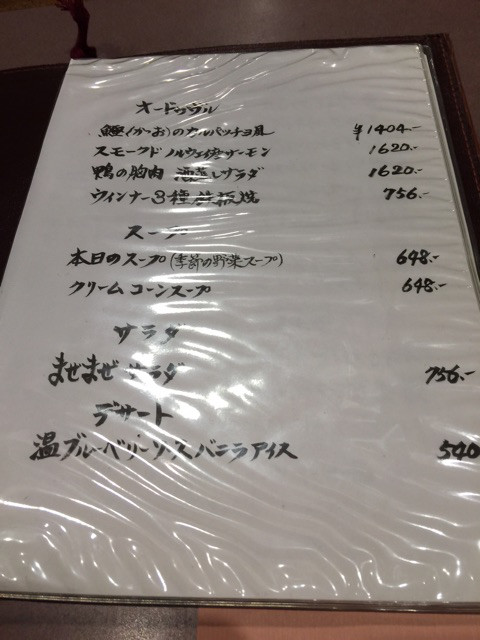 オードヴル
鰹(かつお)のカルパッチョ風 ¥1404.-
スモークドノルウェイ産サーモン 1620.-
鴨の胸肉 酒蒸しサラダ 1620.-
ウィンナー3種鉄板焼 756.-
スープ
本日のスープ(季節の野菜スープ) 648.-
クリームコーンスープ 648.-
サラダ
まぜまぜサラダ 756.-
デザート
温ブルーベリーソースバニラアイス 540